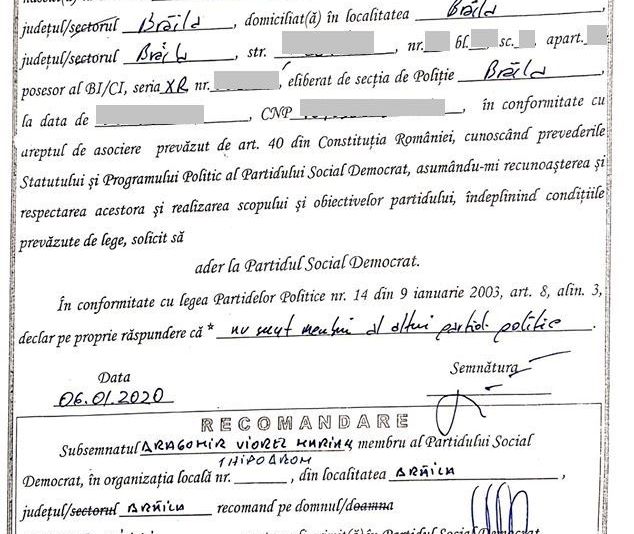 județul/sectorul Brăila, domiciliat(ă) în localitatea Brăila
județul/sectorul Brăila, str. , nr. bl. , sc. , apart.
posesor al BI/CI, seria XR nr. , eliberat de secția de Poliție Brăila
la data de , CNP , în conformitate cu
areptul de asociere prevăzut de art. 40 din Constituția României, cunoscând prevederile
Statutului și Programului Politic al Partidului Social Democrat, asumându-mi recunoașterea și
respectarea acestora și realizarea scopului și obiectivelor partidului, îndeplinind condițiile
prevăzute de lege, solicit să
ader la Partidul Social Democrat.
În conformitate cu legea Partidelor Politice nr. 14 din 9 ianuarie 2003, art. 8, alin. 3,
declar pe proprie răspundere că * nu sunt membru al altui partid politic.
Data
Semnătura
06.01.2020
RECOMANDARE
Subsemnatul DRAGOMIR VIOREL MARIAN, membru al Partidului Social
1 HIPODROM
Democrat, în organizația locală nr. , din localitatea BRĂILA,
județul/sectorul BRĂILA recomand pe domnul/doamna